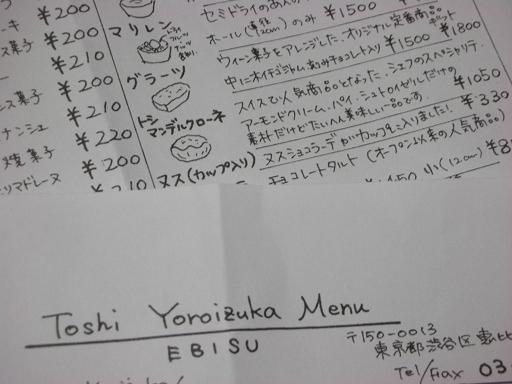 ¥200
菓子 ¥200
¥210
菓子 ¥200
ナンシェ ¥210
焼菓子 ¥220
マドレーヌ ¥200
マリレン
グラーツ
トシ
マンデルクローネ
ヌス(カップ入り)
セミドライの
ホール(直径12cm)のみ ¥1500
ウィーン菓子をアレンジした、オリジナル定番商品
中に チョコレート入り ¥1500 ¥1800
スイスで人気商品となった、シェフのスペシャリテ.
アーモンドクリーム、パイ、シュトロイゼルだけの
素朴だけどたいへん美味しい一品です。 ¥1050
ヌスショコラーデ がカップに入りました! ¥330
チョコレートタルト (オープン以来の人気商品)
小(12cm) ¥8
Toshi Yoroizuka Menu
EBISU
〒150-0013
東京都渋谷区恵比
Tel/Fax 03